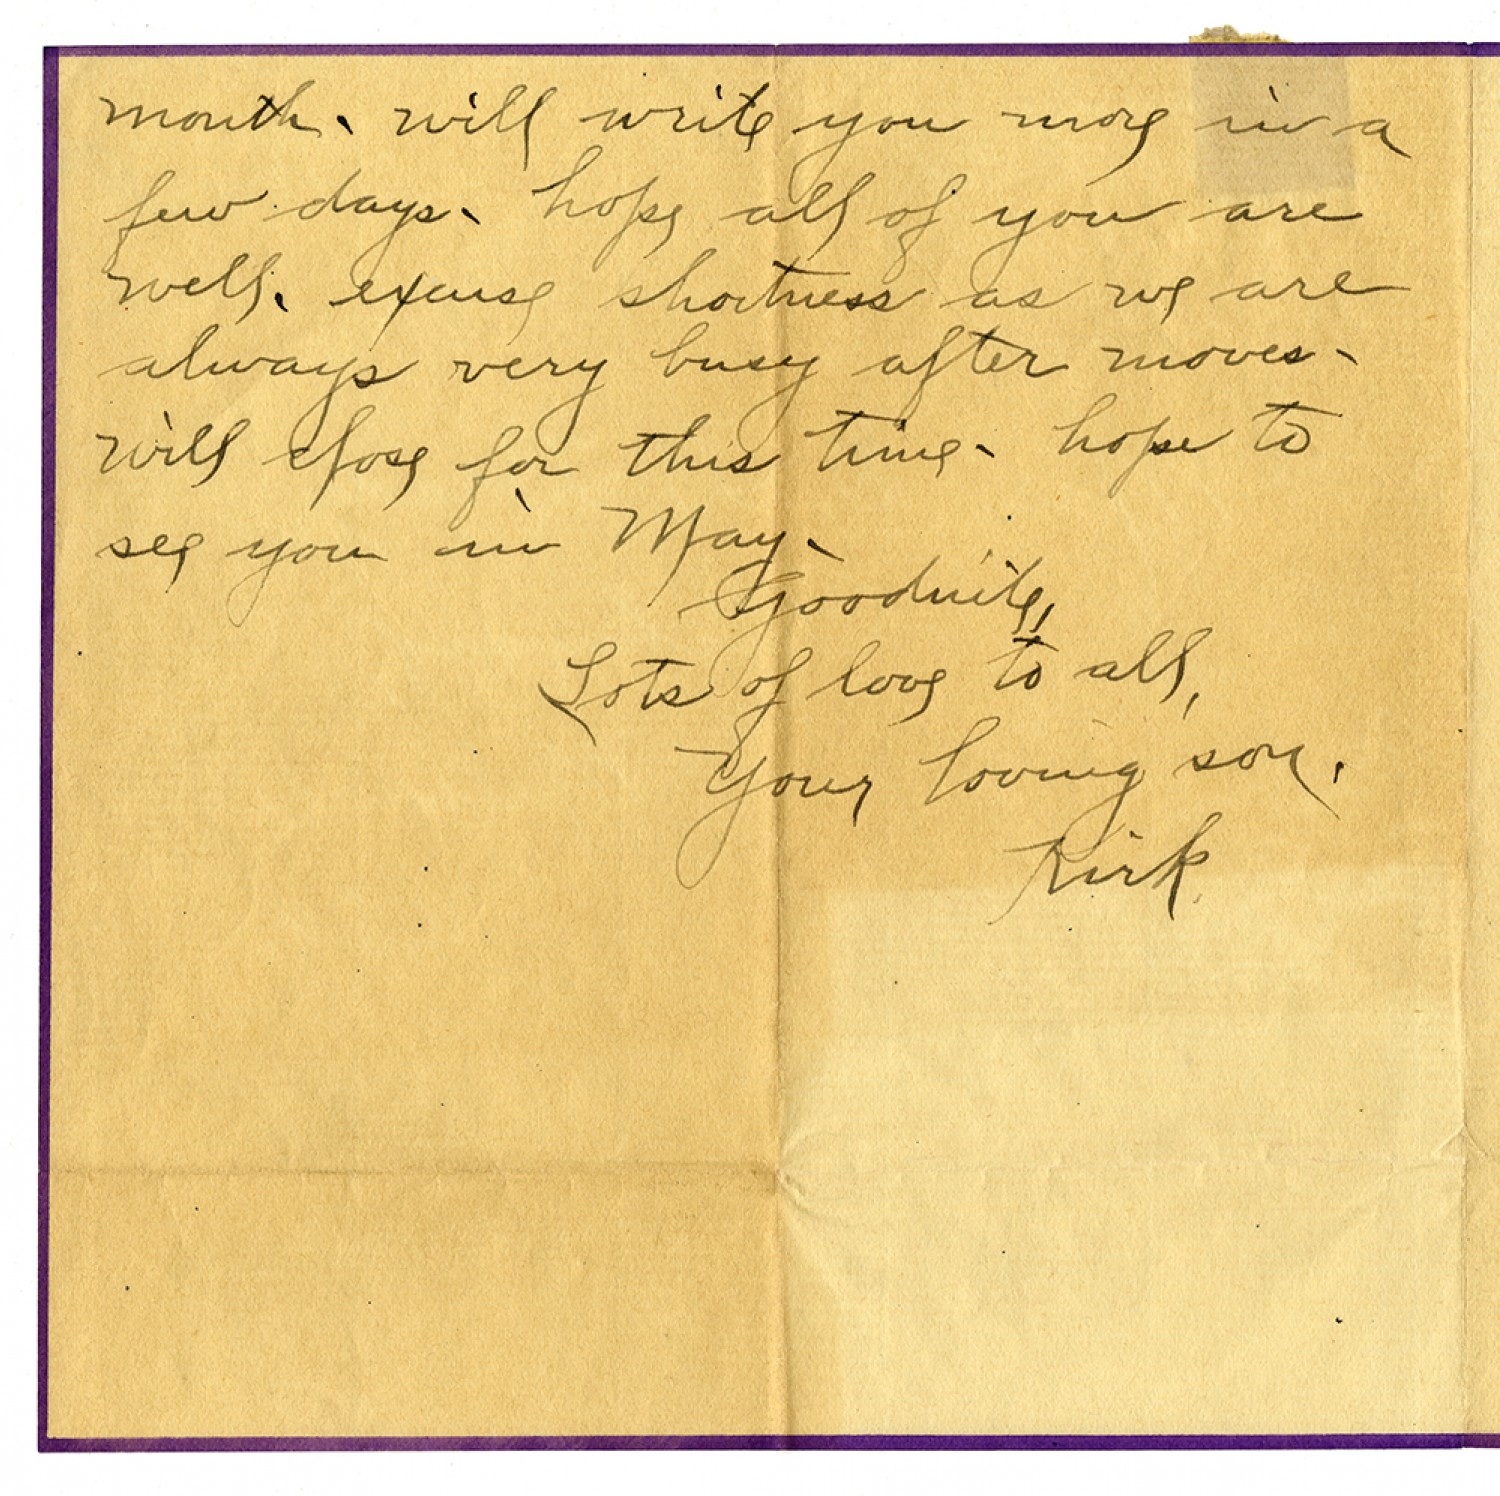 month. will write you more in a
few days. hope all of you are
well. excuse shortness as we are
always very busy after moves.
will close for this time. hope to
see you in May.
Goodnite,
Lots of love to all,
Your loving son.
Kirk